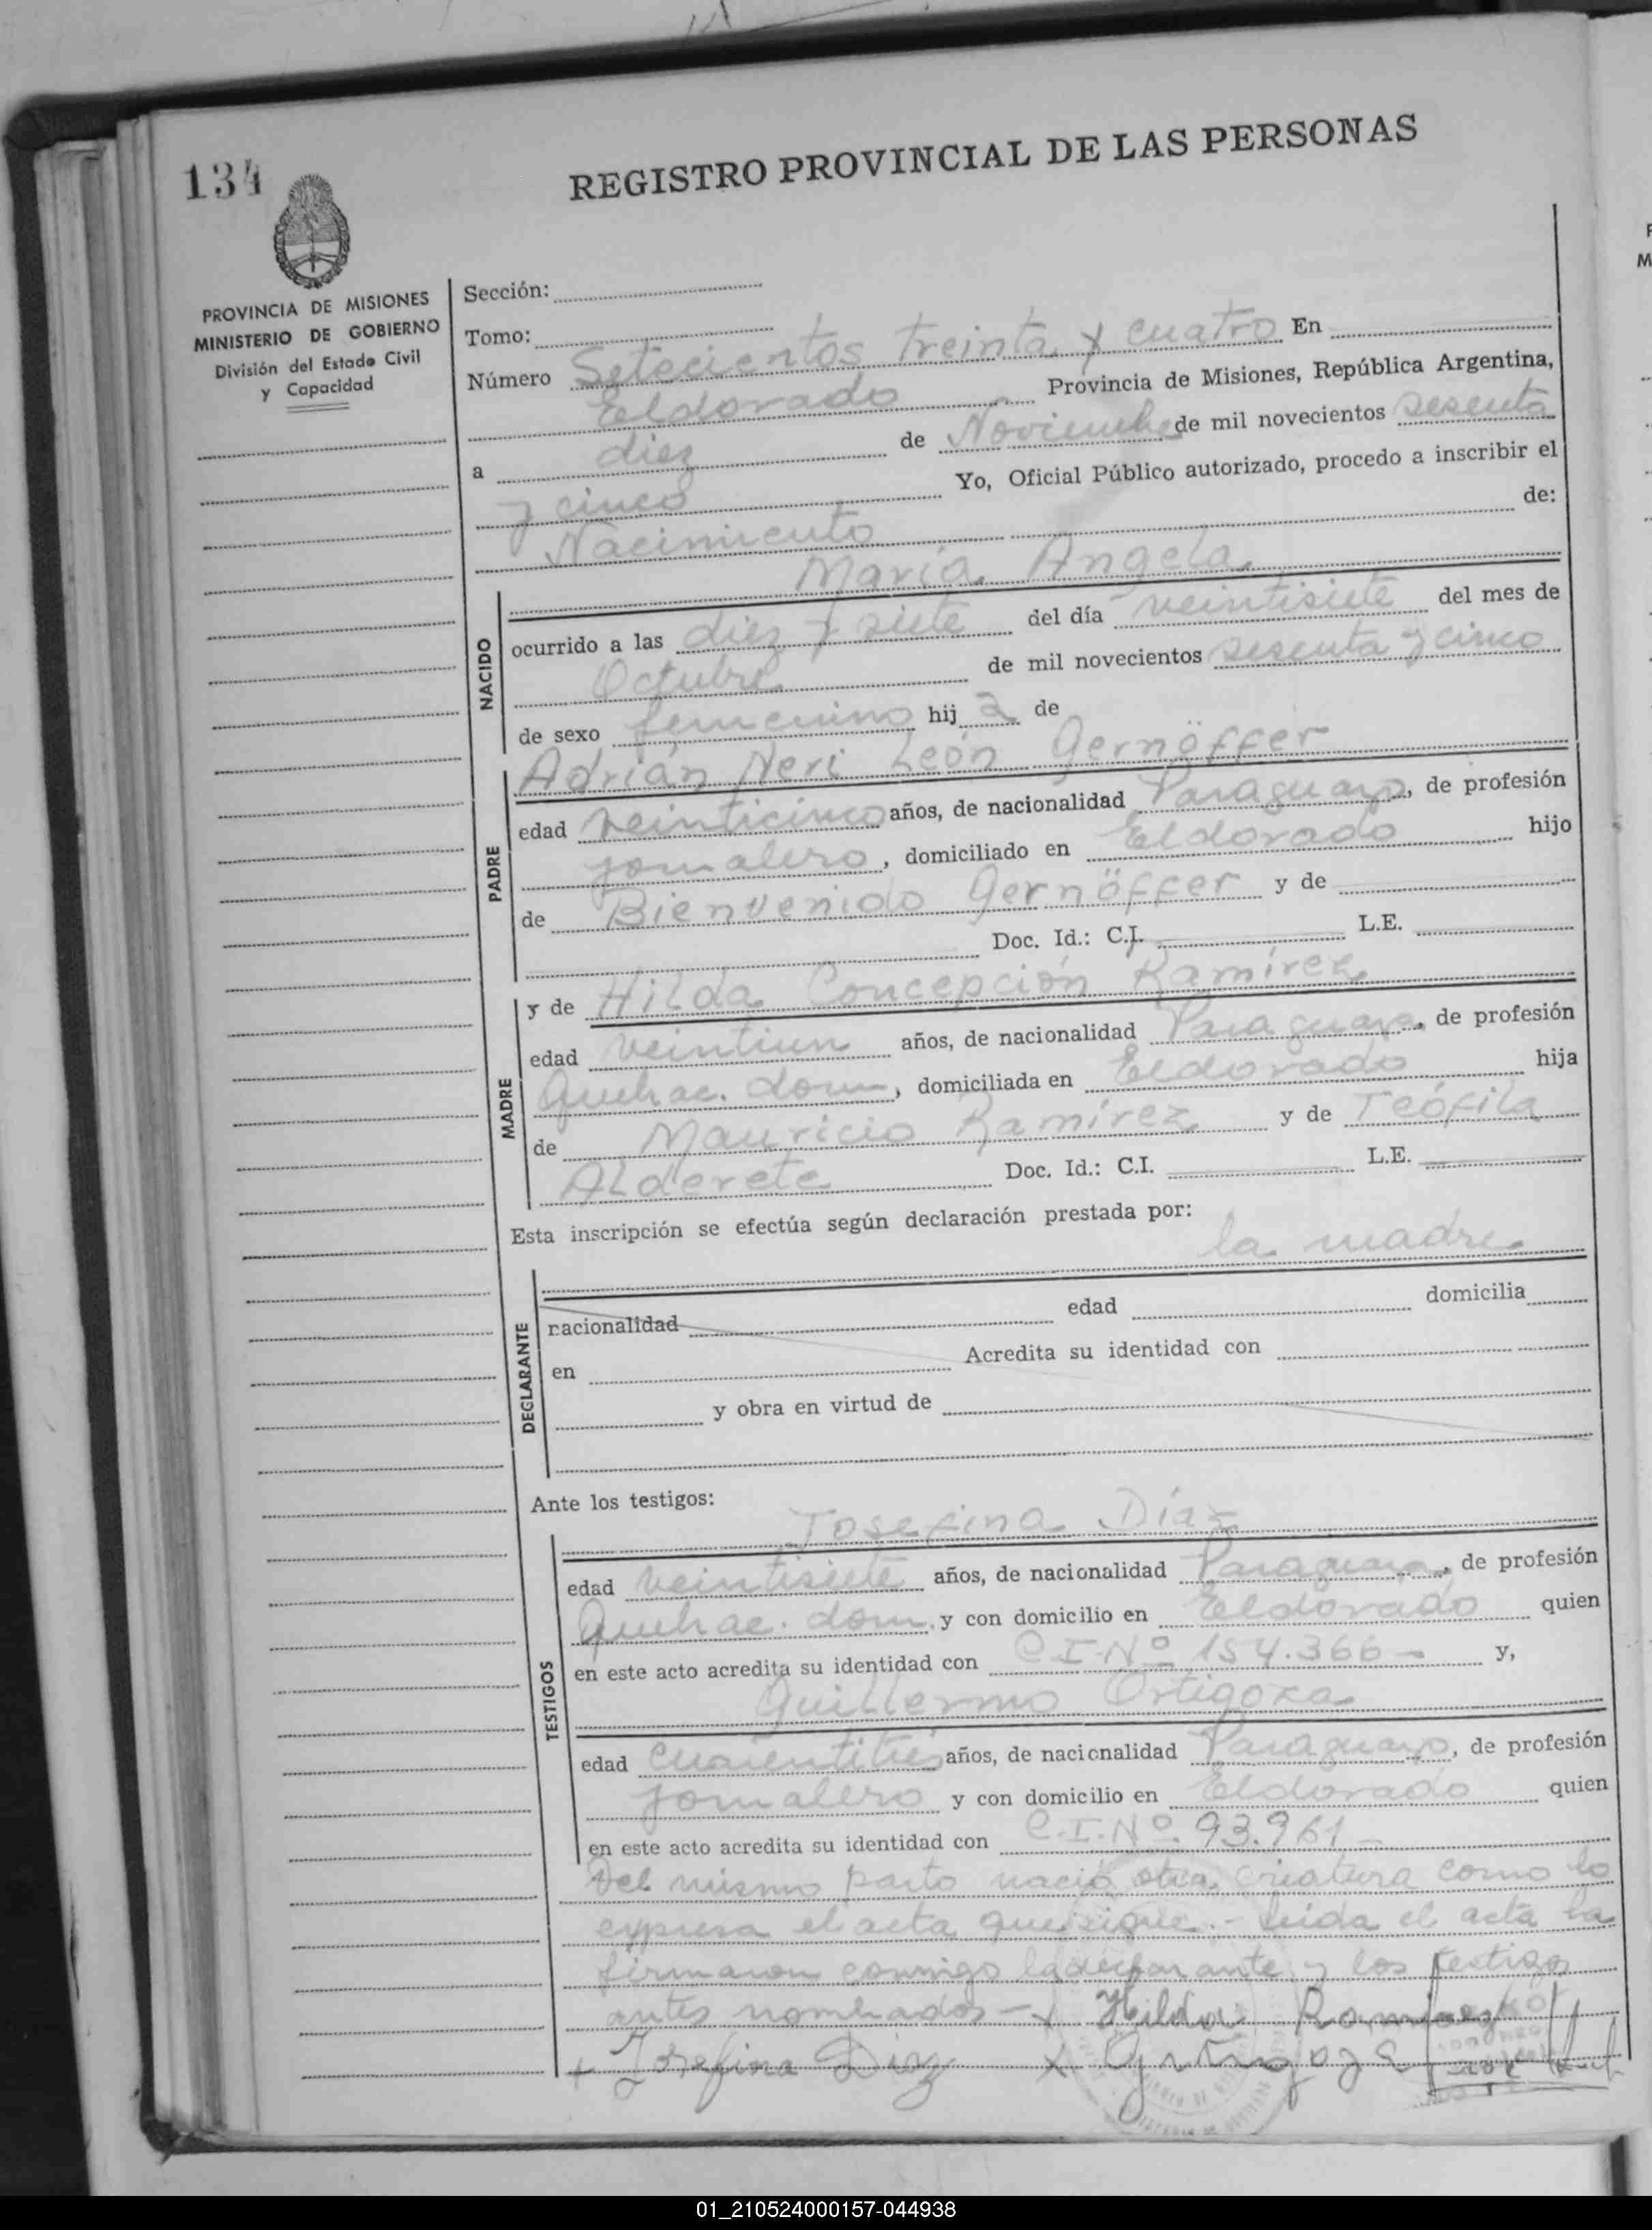 134
REGISTRO PROVINCIAL DE LAS PERSONAS
PROVINCIA DE MISIONES
MINISTERIO DE GOBIERNO
División del Estado Civil
y Capacidad
Sección:
Tomo:
Número Setecientos treinta y cuatro En
Eldorado Provincia de Misiones, República Argentina,
a diez de Noviembre de mil novecientos sesenta
y cinco Yo, Oficial Público autorizado, procedo a inscribir el
Nacimiento de:
María Angela
NACIDO
ocurrido a las diez y siete del día veintisiete del mes de
Octubre de mil novecientos sesenta y cinco
de sexo femenino hij a de
Adrián Neri León Gernöffer
PADRE
edad veinticinco años, de nacionalidad Paraguayo, de profesión
jornalero, domiciliado en Eldorado hijo
de Bienvenido Gernöffer y de
Doc. Id.: C.I. L.E.
y de Hilda Concepción Ramírez
MADRE
edad veintiun años, de nacionalidad Paraguaya, de profesión
Quehac. dom, domiciliada en Eldorado hija
de Mauricio Ramírez y de Teófila
Alderete Doc. Id.: C.I. L.E.
Esta inscripción se efectúa según declaración prestada por:
la madre
DECLARANTE
nacionalidad edad domicilia
en Acredita su identidad con
y obra en virtud de
Ante los testigos:
Josefina Díaz
TESTIGOS
edad veintisiete años, de nacionalidad Paraguaya, de profesión
Quehac. dom. y con domicilio en Eldorado quien
en este acto acredita su identidad con C.I. Nº 154.366 - y,
Guillermo Ortigoza
edad cuarentitrés años, de nacionalidad Paraguayo, de profesión
jornalero y con domicilio en Eldorado quien
en este acto acredita su identidad con C.I. Nº 93.961 -
Del mismo parto nació otra criatura como lo
expresa el acta que sigue. - Leida el acta la
firmaron conmigo la declarante y los testigos
antes nombrados - x Hilda Ramirez
x Josefina Diaz x
01_210524000157-044938